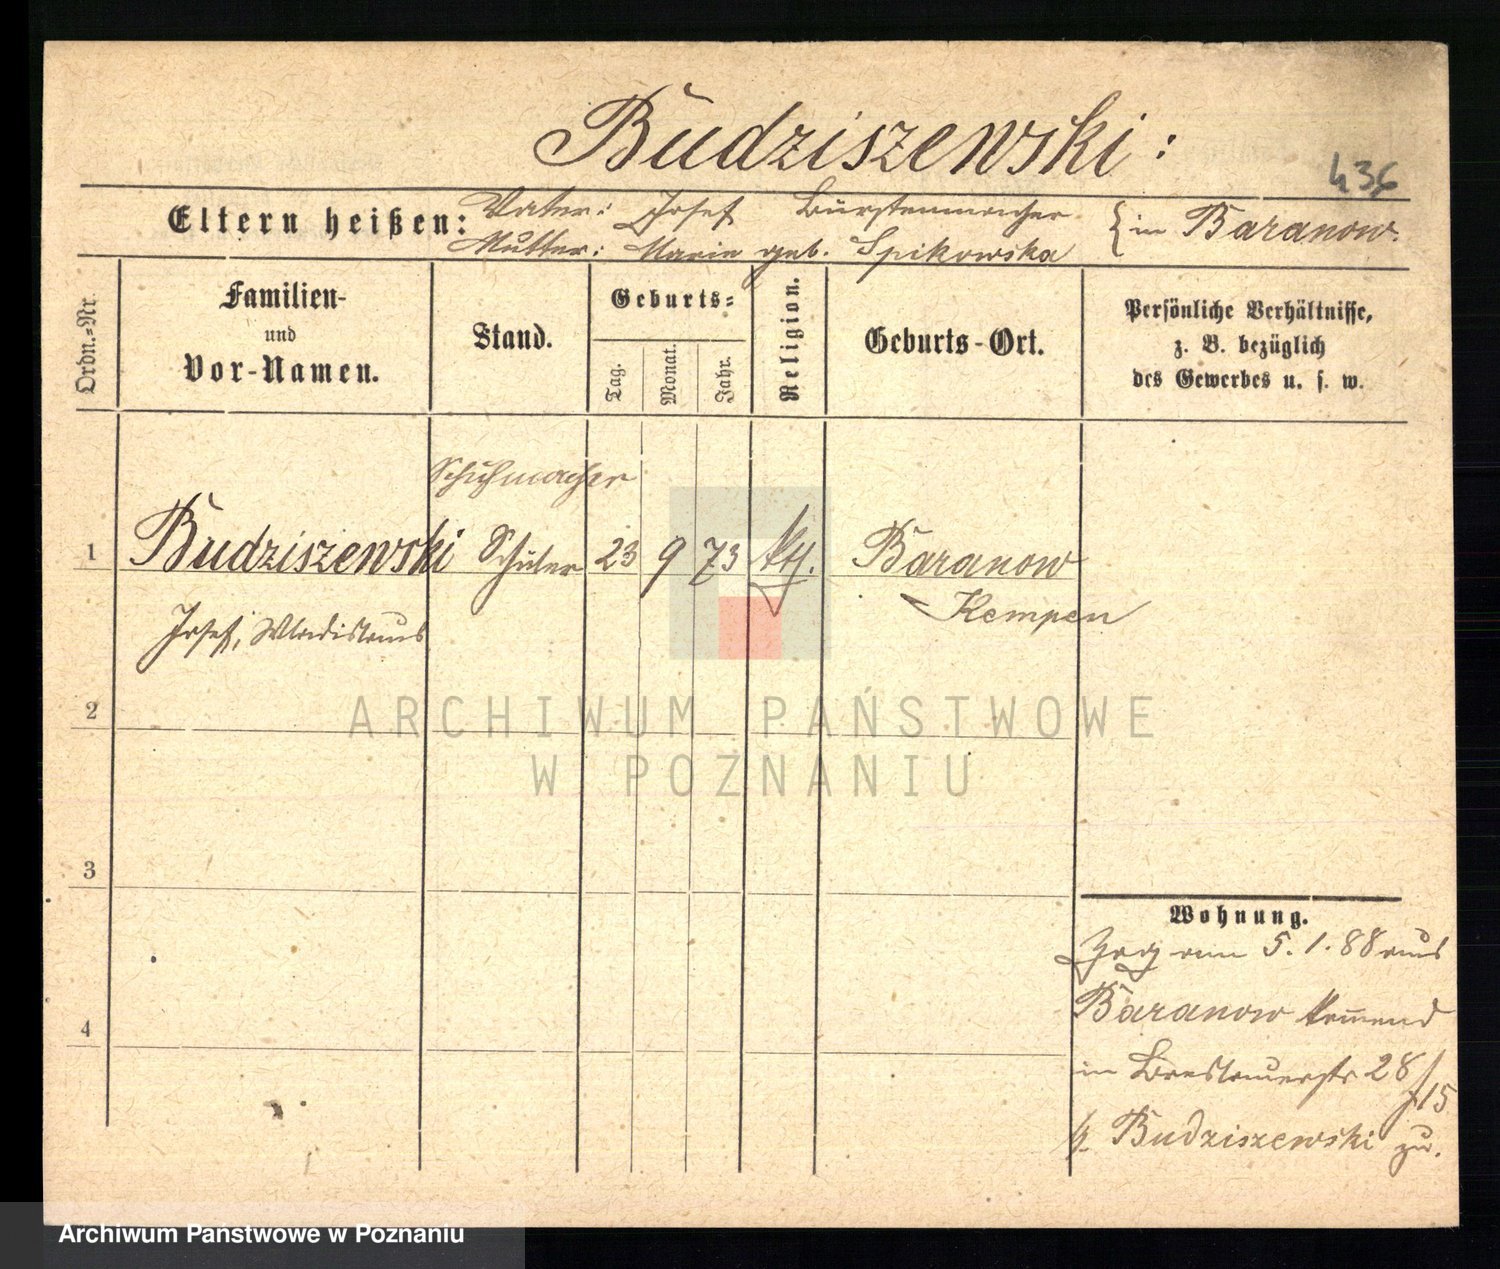 Budziszewski:
436
Eltern heißen: Vater: Josef Bürstenmacher
Mutter: Marie geb. Spikowska
} in Baranow.
Ordn.-Nr.
Familien-
und
Vor-Namen.
Stand.
Geburts-
Tag.
Monat.
Jahr.
Religion.
Geburts-Ort.
Persönliche Verhältnisse,
z. B. bezüglich
des Gewerbes u. s. w.
Schuhmacher
1 Budziszewski Schüler 23 9 73 kth. Baranow
Kempen
Josef, Wladislaus
2
3
4
Wohnung.
Zog am 5.1.88 aus
Baranow kommend
in Breslauerstr 28/15
b. Budziszewski zu.
ARCHIWUM PAŃSTWOWE
W POZNANIU
Archiwum Państwowe w Poznaniu